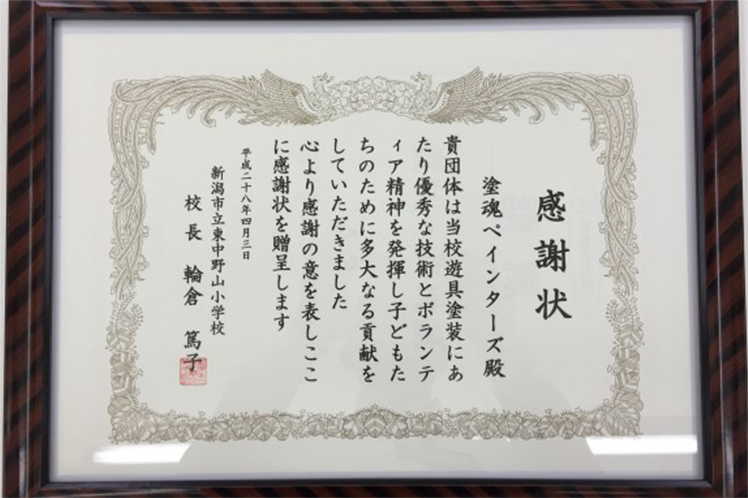 感謝状
塗魂ペインターズ殿
貴団体は当校遊具塗装にあ
たり優秀な技術とボランテ
ィア精神を発揮し子どもた
ちのために多大なる貢献を
していただきました
心より感謝の意を表しここ
に感謝状を贈呈します
平成二十八年四月三日
新潟市立東中野山小学校
校長 輪倉 篤子